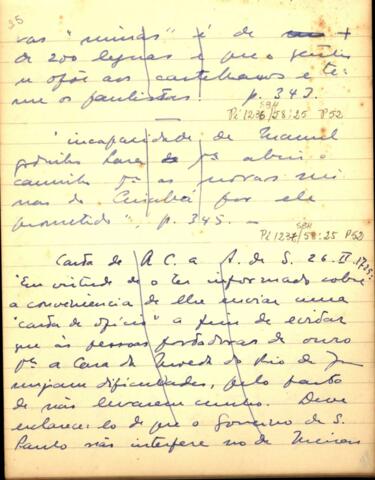 25
vas "minas" é de + 
de 200 legoas e que o gentio
se opõe aos castelhanos e te-
me os paulistas. p. 343.
SBH
Pi 1236/58:25 P52
"incapacidade de Manuel
Godinho Lara de pª abrir o
caminho pª as novas mi-
nas de Cuiabá por ele
prometido", p. 345. —
SBH
Pi 1237/58:25 P52
Carta de R.C. a A. de S. 26.II.1725:
"Em virtude de o ter informado sobre
a conveniencia de lhe enviar uma
"carta de oficio" a fim de evitar
que às pessoas portadoras de ouro
pª a Casa da Moeda do Rio de Jan
surjam dificuldades, pelo facto
de não levarem cunho. Deve
esclarecê-lo de que o Governo de S.
Paulo não interfere no de Minas